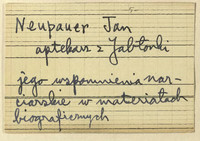 Neupauer Jan
aptekarz z Jabłonki
jego wspomnienia nar-
ciarskie w materiałach
biograficznych